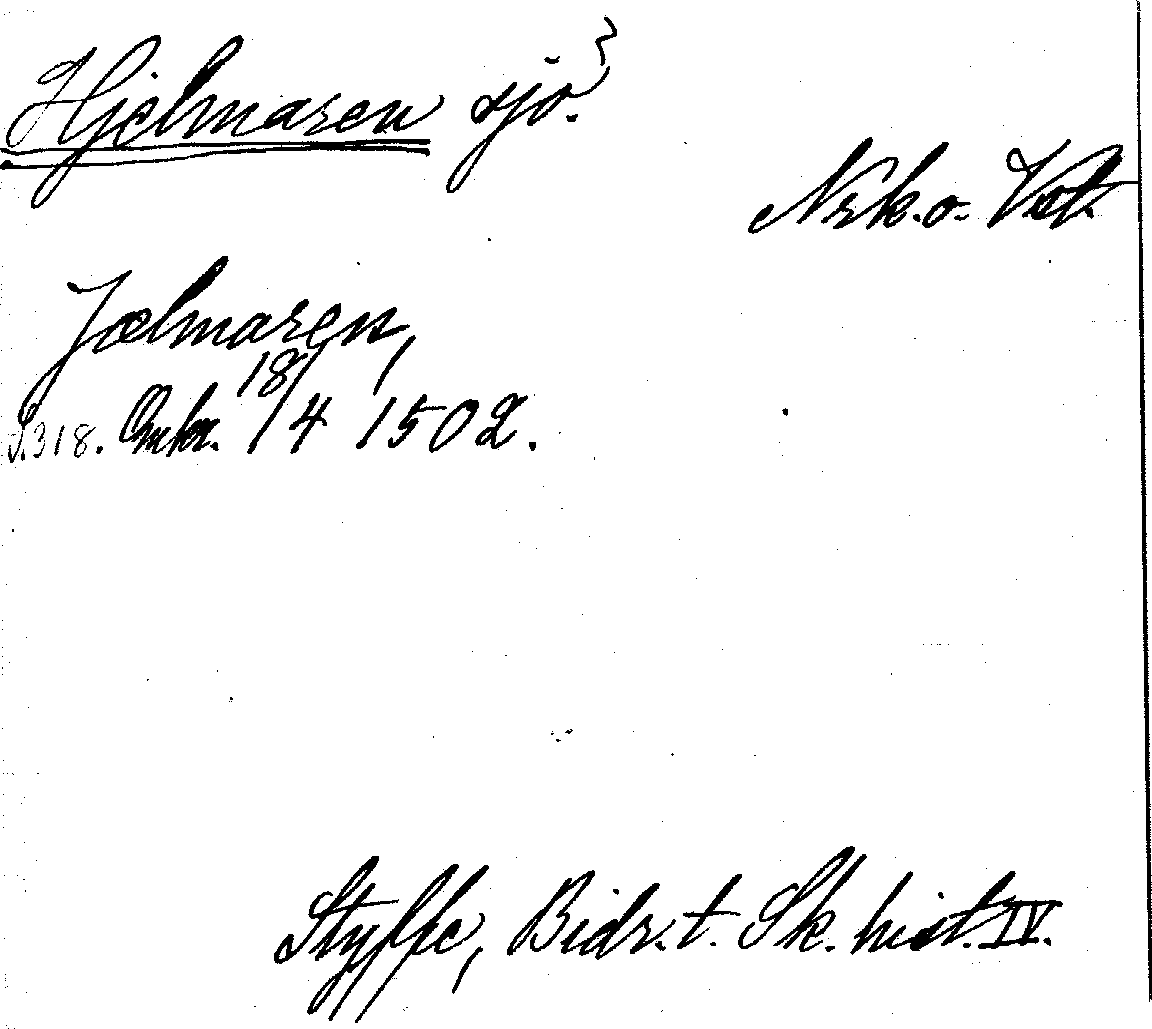 Hjelmaren sjö.
Nrk. o. Vst.
Jælmaren,
S. 318. Omkr. 18/4 1502.
Styffe, Bidr. t. Sk. hist. IV.